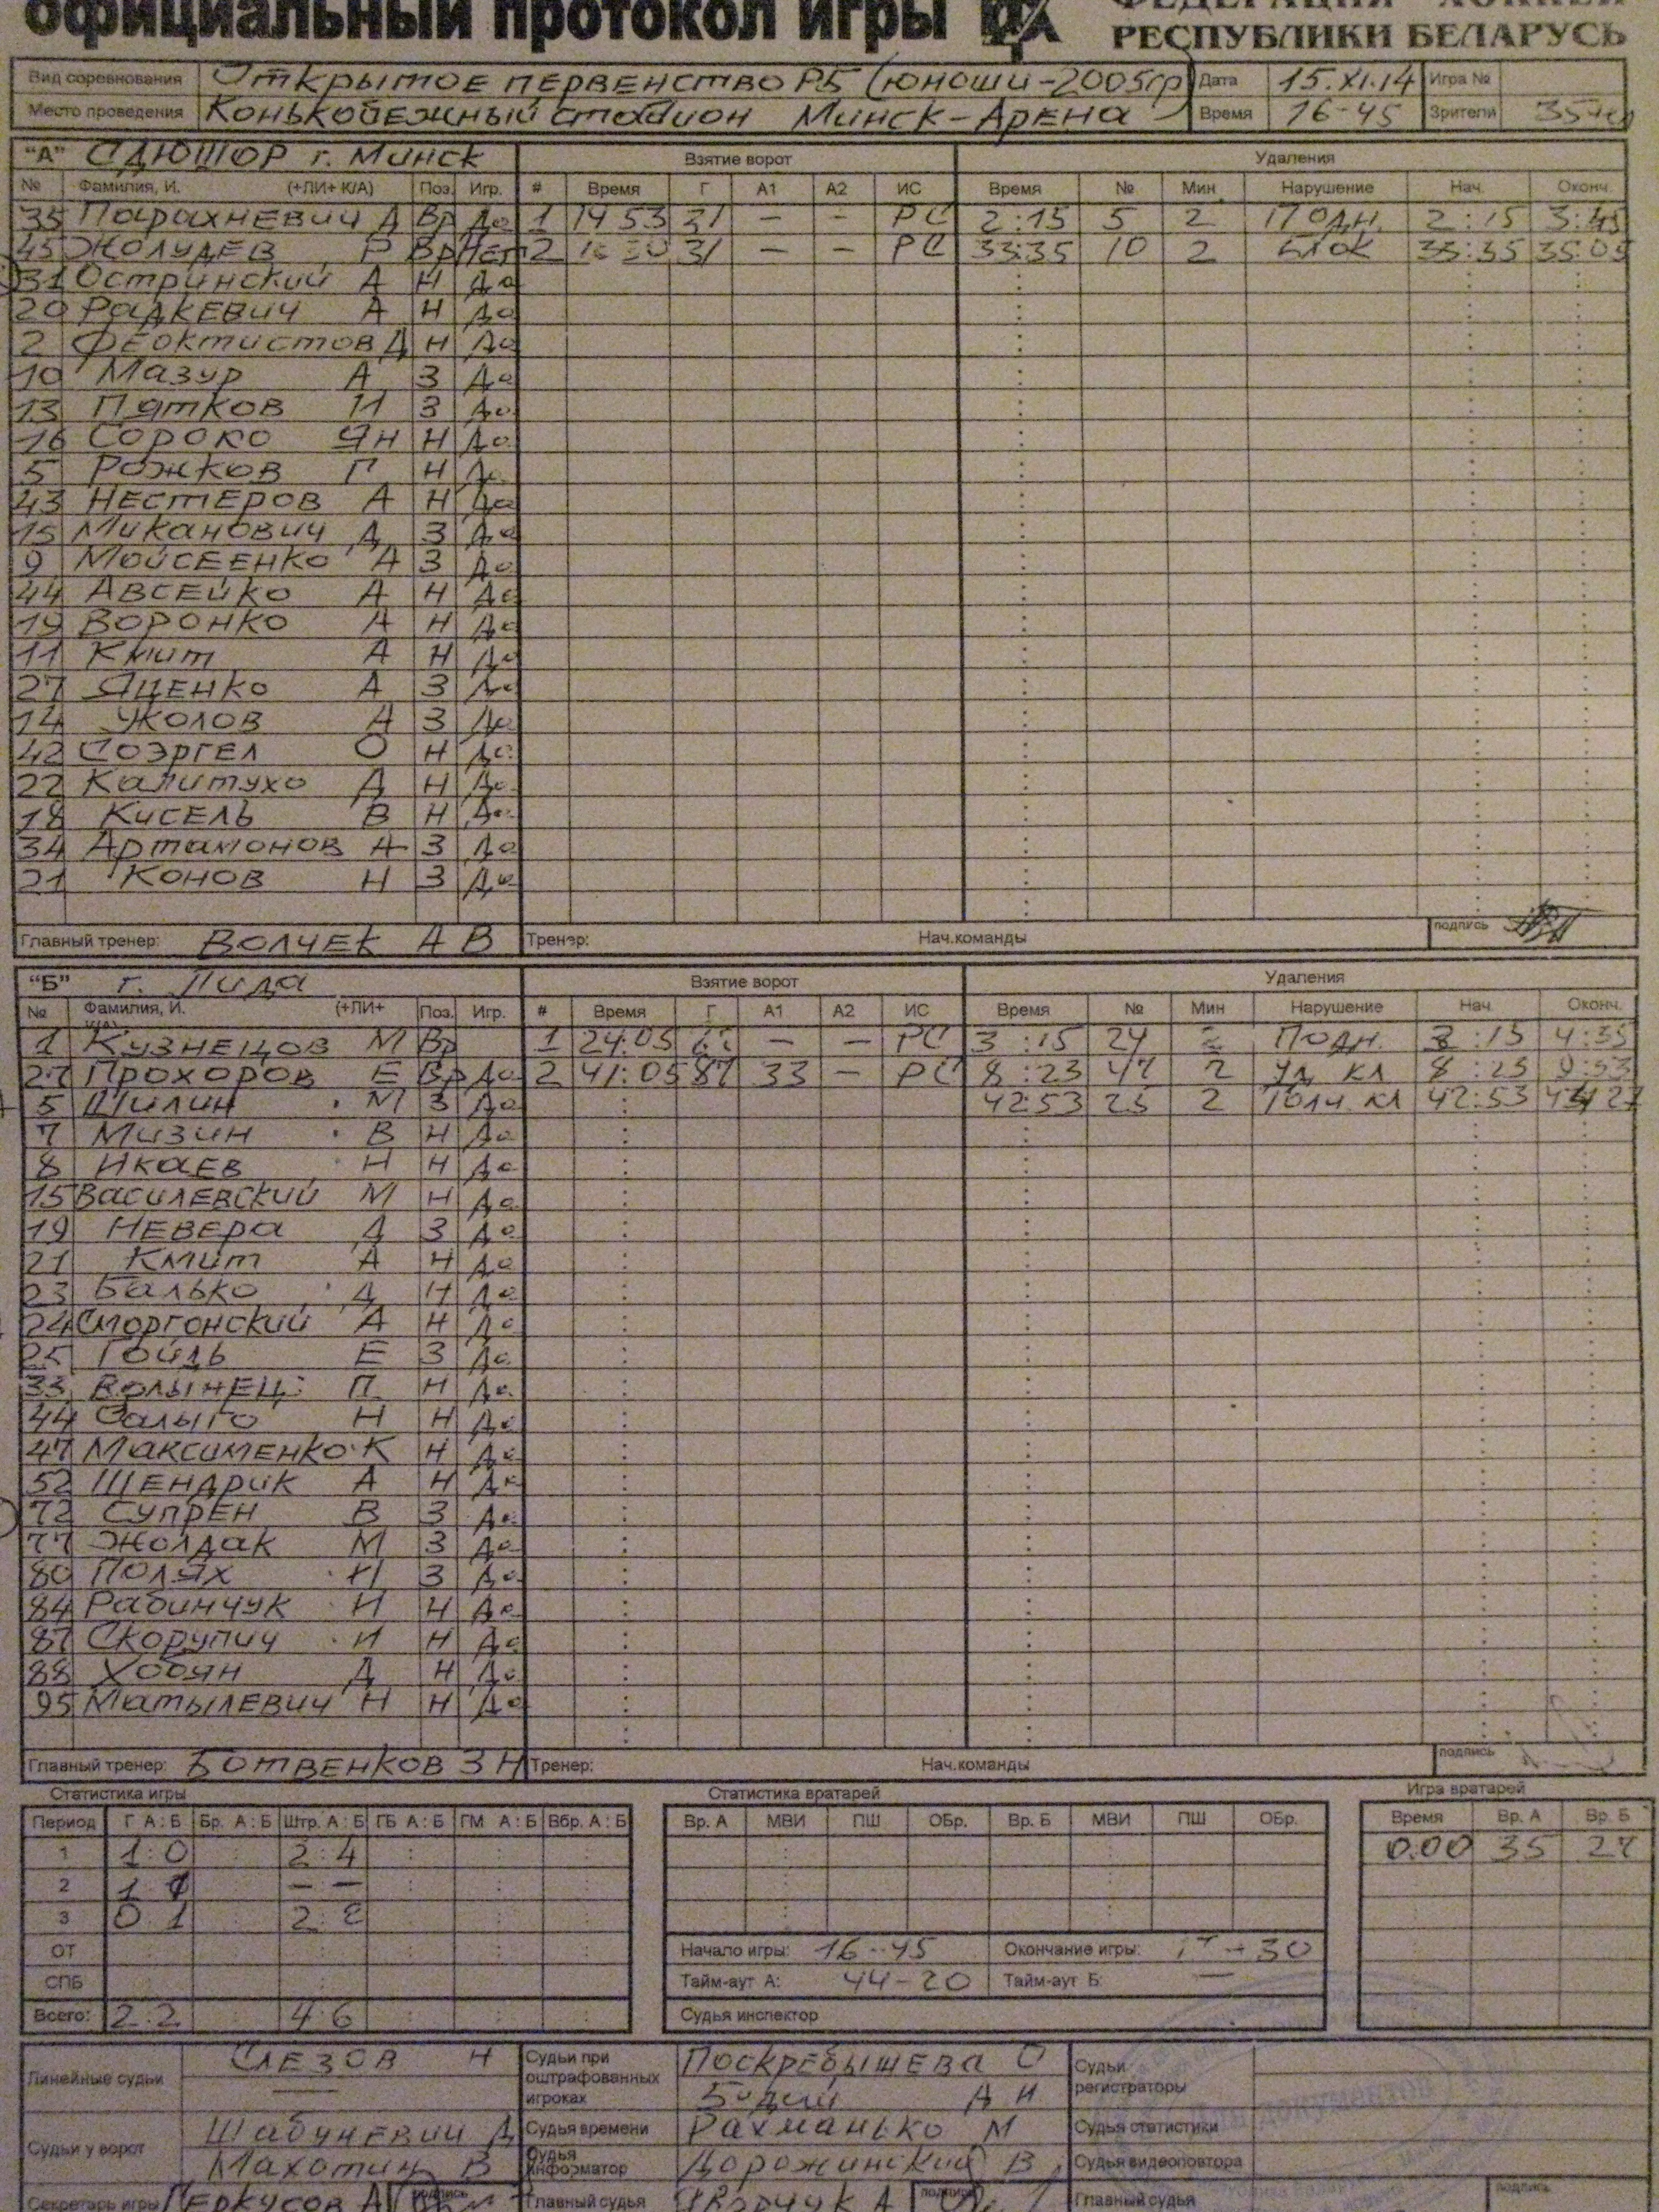 официальный протокол игры
ФЕДЕРАЦИЯ ХОККЕЯ
РЕСПУБЛИКИ БЕЛАРУСЬ
Вид соревнования Открытое первенство РБ (юноши-2005гр) Дата 15.XI.14 Игра №
Место проведения Конькобежный стадион Минск-Арена Время 16-45 Зрители 35чел
"А" СДЮШОР г. Минск Взятие ворот Удаления
№ Фамилия, И. (+ЛИ+ К/А) Поз. Игр. # Время Г А1 А2 ИС Время № Мин Нарушение Нач. Оконч.
35 Парахневич Д Вр Да 1 14 53 31 — — РС 2:15 5 2 Подн. 2:15 3:45
45 Жолудев Р Вр Нет 2 31 — — РС 33:35 10 2 Блок 33:35 35:05
31 Остринский А Н Да
20 Радкевич А Н Да
2 Феоктистов Д Н Да
10 Мазур А З Да
13 Пятков И З Да
16 Сороко Ян Н Да
5 Рожков Г Н Да
43 Нестеров А Н Да
15 Миканович Д З Да
9 Мойсеенко А З Да
44 Авсейко А Н Да
19 Воронко А Н Да
11 Кмит А Н Да
27 Яценко А З Да
14 Жолов А З Да
42 Соэргел О Н Да
22 Калитухо Д Н Да
18 Кисель В Н Да
34 Артамонов А З Да
21 Конов Н З Да
Главный тренер: Волчек А В Тренер: Нач.команды подпись
"Б" г. Лида Взятие ворот Удаления
№ Фамилия, И. (+ЛИ+ Поз. Игр. # Время Г А1 А2 ИС Время № Мин Нарушение Нач. Оконч.
1 Кузнецов М Вр 1 24:05 — — РС 3:15 24 2 Подн. 3:15 4:35
27 Прохоров Е Вр Да 2 41:05 87 33 — РС 8:23 47 2 Уд. кл 8:23 9:53
5 Шилин М З Да 42:53 25 2 Толч. кл 42:53
7 Мизин В Н Да
8 Икаев Н Н Да
15 Василевский М Н Да
19 Невера Д З Да
21 Кмит А Н Да
23 Балько Д Н Да
24 Сморгонский А Н Да
25 Гойль Е З Да
33 Волынец П Н Да
44 Салыго Н Н Да
47 Максименко К Н Да
52 Шендрик А Н Да
72 Супрен В З Да
77 Жолдак М З Да
80 Полях И З Да
84 Рабинчук И Н Да
87 Скорупич И Н Да
88 Хобян Д Н Да
95 Матылевич Н Н Да
Главный тренер: Ботвенков З Н Тренер: Нач.команды подпись
Статистика игры Статистика вратарей Игра вратарей
Период Г А:Б Бр. А:Б Штр. А:Б ГБ А:Б ГМ А:Б Вбр. А:Б Вр. А МВИ ПШ ОБр. Вр. Б МВИ ПШ ОБр. Время Вр. А Вр. Б
1 1:0 2:4 0.00 35 27
2 1 1 — —
3 0 1 2:2
ОТ Начало игры: 16-45 Окончание игры: -30
СПБ Тайм-аут А: 44-20 Тайм-аут Б: —
Всего: 2:2 4:6 Судья инспектор
Линейные судьи Слезов Н Судьи при оштрафованных игроках Поскребышева О Судьи регистраторы
— А И
Судьи у ворот Шабуневич Д Судья времени Рахманько М Судья статистики
Махотин В Судья информатор Дорожинский В Судья видеоповтора
Секретарь игры Геркусов А подпись Главный судья А подпись Главный судья подпись